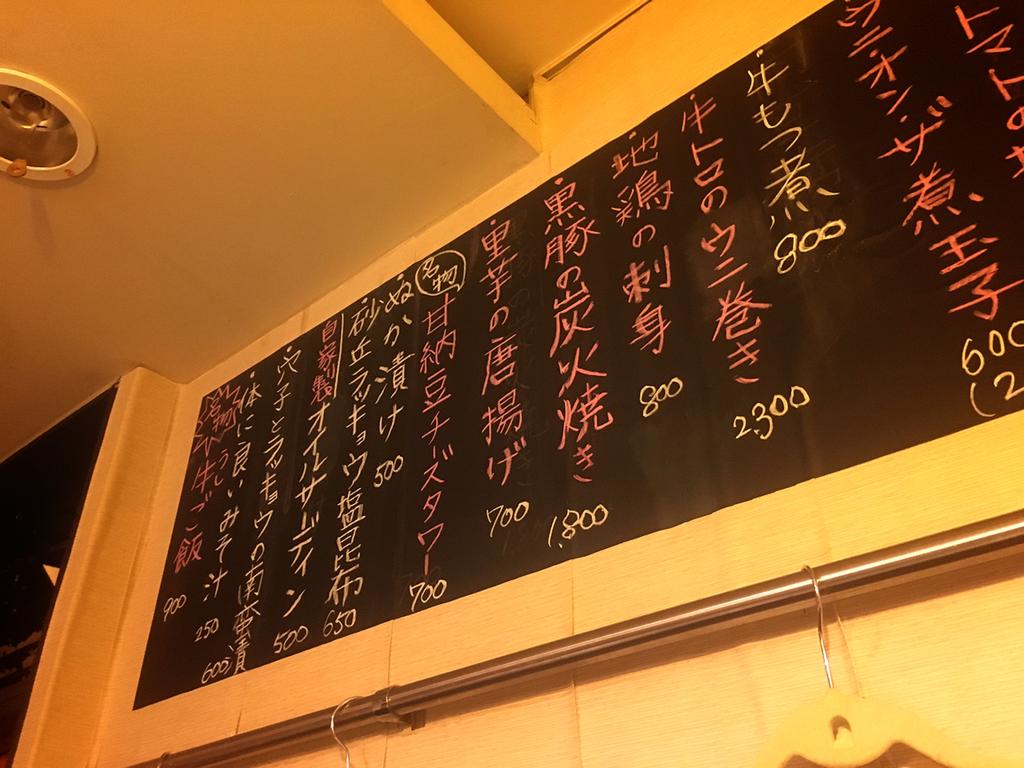 トマトの
ウニオン・ザ・煮玉子 600
(2
牛もつ煮 800
牛トロのウニ巻き 2,300
地鶏の刺身 800
黒豚の炭火焼き 1,800
里芋の唐揚げ 700
名物 甘納豆チーズタワー 700
ぬか漬け 500
砂丘ラッキョウ塩昆布 650
自家製オイルサーディン 500
穴子とラッキョウの南蛮漬 600
体に良いみそ汁 250
牛ご飯 900